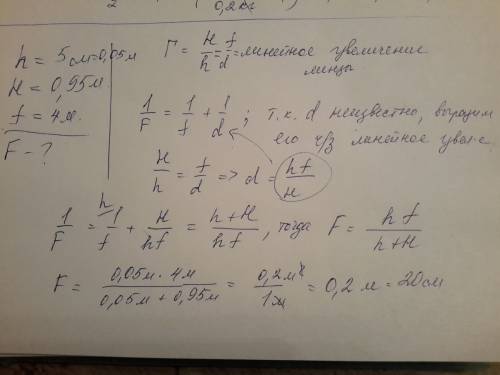 2 0,2кг
h = 5 см = 0,05 м
H = 0,95 м
f = 4 м
F - ?
Г = H/h = f/d = линейное увеличение
линзы
1/F = 1/f + 1/d ; т.к. d неизвестно, выразим
его ч/з линейное увел-е
H/h = f/d => d = hf/H
1/F = h/ 1/f + H/hf = h+H/hf , тогда F = hf/h+H
F = 0,05м · 4м / 0,05м + 0,95м = 0,2м²/1м = 0,2 м = 20см